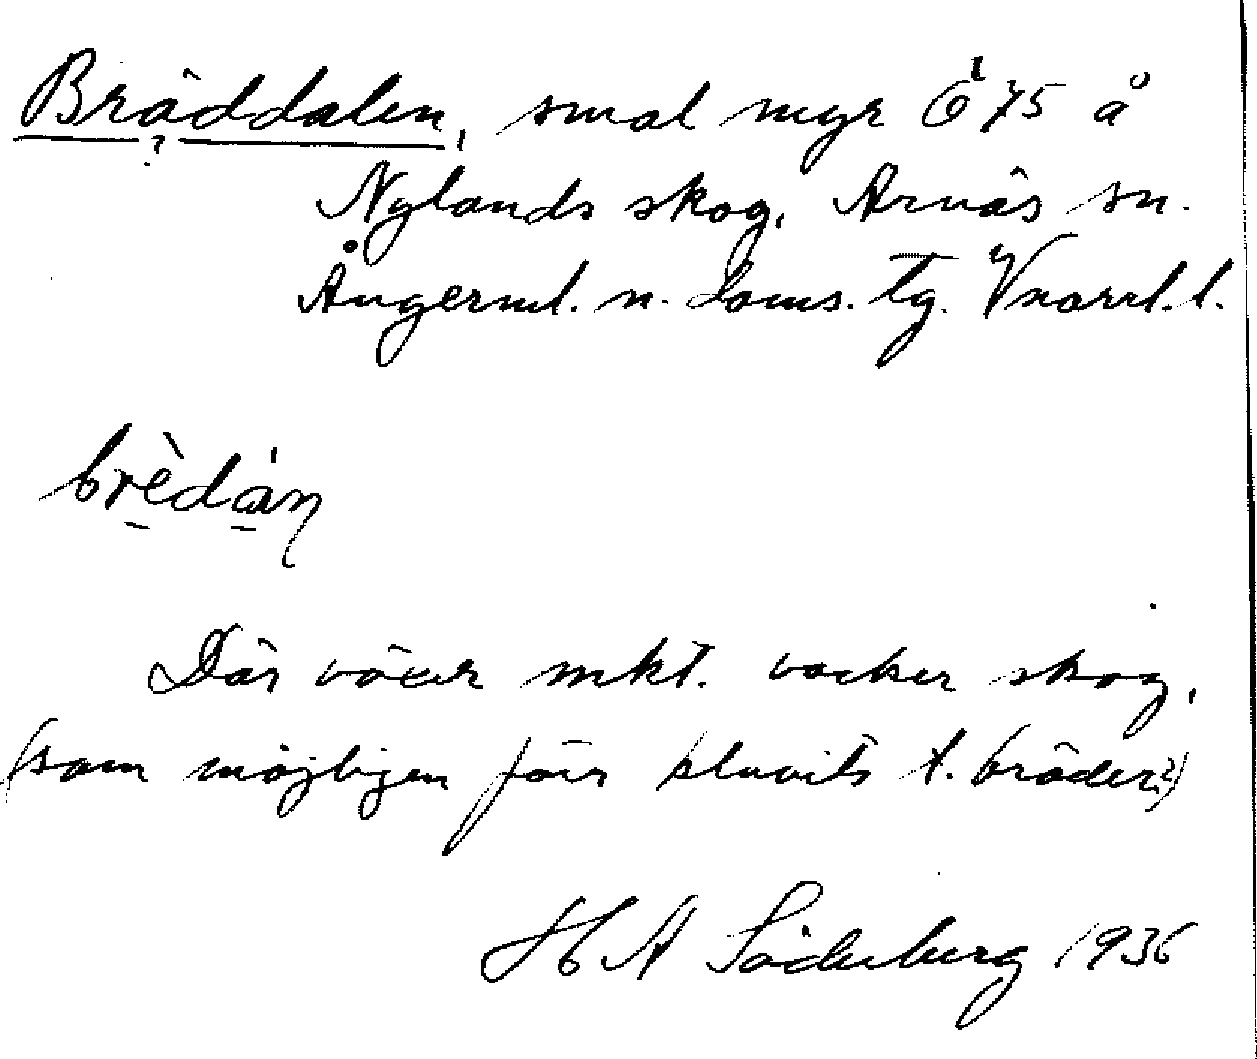 Bräddalen, smal myr Ö 75 å
?
Nylands skog, Arnäs sn.
Ångerml. n. doms. tg. Västerrl. l.
brèdán
Där växer mkt. vacker skog,
(som möjligen förr kluvits t. bräder?)
H A Söderberg 1936